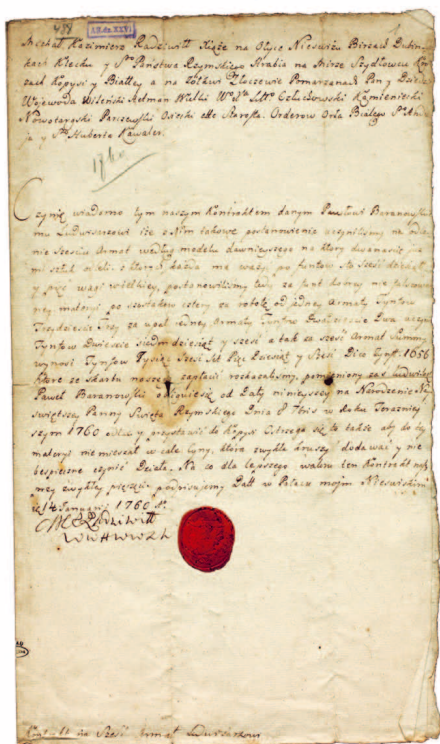 AR dz. XXVI
Michał Kazimierz Radziwiłł Xiąże na Ołyce Nieswiżu Birżach Dubin
kach Klecku y S° Państwa Rzymskiego Hrabia na Mirze Szydłowcu
Kopysi y Białłey a na Żółkwi Złoczewie Pomorzanach Pan y
Wojewoda Wileński Hetman Wielki Człuchowski Kamieniecki
Nowotargski Parczewski Osiecki Starosta. Orderow Orła Białego
ja y S° Huberta Kawaler.
1760
Czynię wiadomo tym naszym Kontraktem danym Pawłowi Baranowskie
mu Ludwisarzowi iże z Nim takowe postanowienie uczyniliśmy na
Sześciu Armat według modelu dawnieyszego na ktory dwanaście
mi sztuk odeli. z ktorych każda ma ważyć po funtow sto sześćdziesiąt
y pięć wagi postanowiliśmy tedy za funt
materyi po szostakow cztery za robotę od jedney Armaty Tynfow
Trzydzieści Trzy za upał jedney Armaty Tynfow Dwadzieścia Dwa
Tynfow Dwieście siedmdziesiąt y sześć a tak za sześć Armat Summy
wynosi Tynfow Tysiąc Sześć Set Pięćdziesiąt y Sześć Dico Tynf: 1656
ktore ze skarbu naszego zapłacić rozkazaliśmy, pomieniony zaś ludwisarz
Paweł Baranowski od Daty ninieyszey na Narodzenie
świętszey Panny Święta Rzymskiego Dnia 8 7bris w Roku Teraznieyszym
1760 odlać y przystawić do Kopysi Ostrzega się to także aby do tey
materyi niemieszał w cale Cyny, ktora zwykła kruszyć dodawać y nie
bespieczne czynić Działa. Na co dla lepszego waloru ten Kontrakt
przy zwykłey pieczęci podpisujemy Datt w Pałacu moim Nieswiskim
d 14 Januarii 1760 R.
MKXRadziwiłł
WWHWWXL
Kontrakt na Sześć Armat Ludwisarzowi